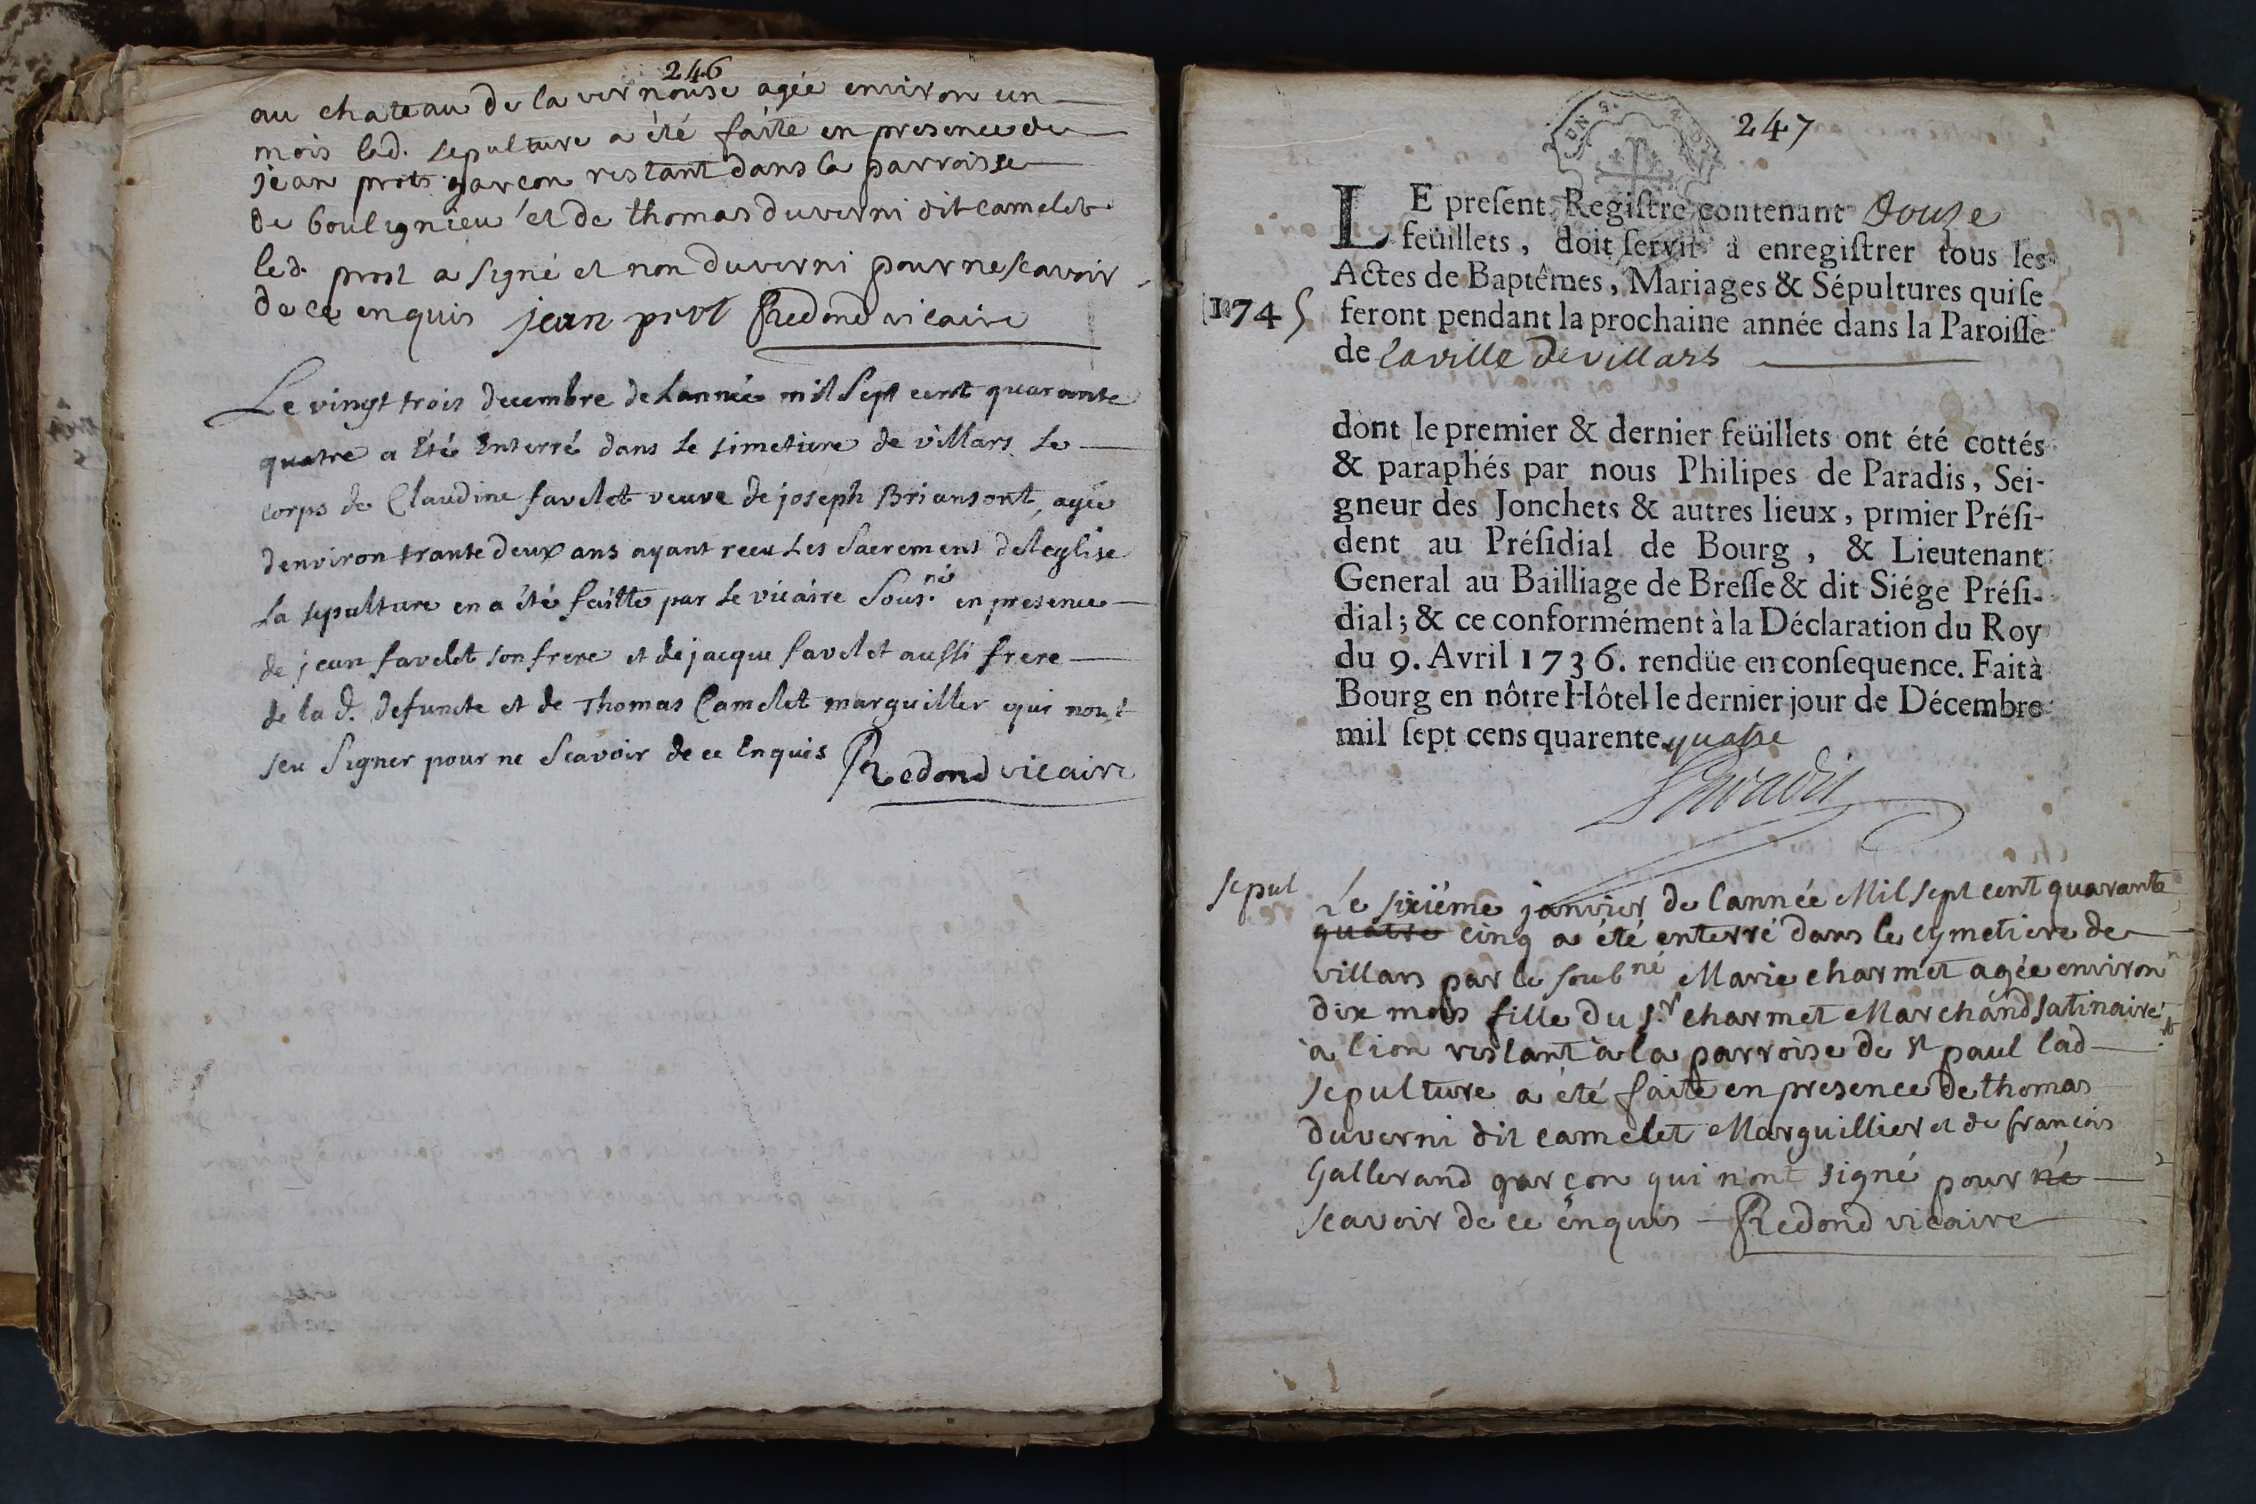 246
au chateau de la vernouse agée environ un
mois lad. sepulture a été faite en presence de
jean prost garçon restant dans la parroisse
de bouligneu et de thomas duverni dit camelet
led. prost a signé et non duverni pour ne scavoir
de ce enquis jean prost Redond vicaire
Le vingt trois decembre de Lannée mil Sept cent quarante
quatre a Eté Enterré dans Le simetiere de villars Le
corps de Claudine favelet veuve de joseph Briansont, agée
denviron trante deux ans ayant receu Les Sacremens deleglise
La sepulture en a été faitte par Le vicaire Sous.né en presence
de jean favelet son frere et de jacque favelet aussi frere
de la d. defuncte et de Thomas Camelet marguiller qui nont
seu Signer pour ne Scavoir de ce Enquis Redond vicaire
247
LE preſent Regiſtre contenant douze
feüillets, doit ſervir à enregiſtrer tous les
Actes de Baptêmes, Mariages & Sépultures qui ſe
1745 feront pendant la prochaine année dans la Paroiſſe
de la ville de villars
dont le premier & dernier feüillets ont été cottés
& paraphés par nous Philipes de Paradis, Sei-
gneur des Jonchets & autres lieux, prmier Préſi-
dent au Préſidial de Bourg, & Lieutenant
General au Bailliage de Breſſe & dit Siége Préſi-
dial; & ce conformément à la Déclaration du Roy
du 9. Avril 1736. rendüe en conſequence. Fait à
Bourg en nôtre Hôtel le dernier jour de Décembre
mil ſept cens quarente quatre
Paradis
sepul Le sixiéme janvier de lannée Mil sept cent quarante
quatre cinq a été enterré dans le cymetiere de
villars par le soubné Marie charmet agée environ
dix mois fille du s.r charmet Marchand satinaire
a lion restant a la parroise de st paul lad
sepulture a été faite en presence de thomas
duverni dit camelet Marguillier et de françois
Gallerand garçon qui nont signé pour ne
scavoir de ce enquis Redond vicaire